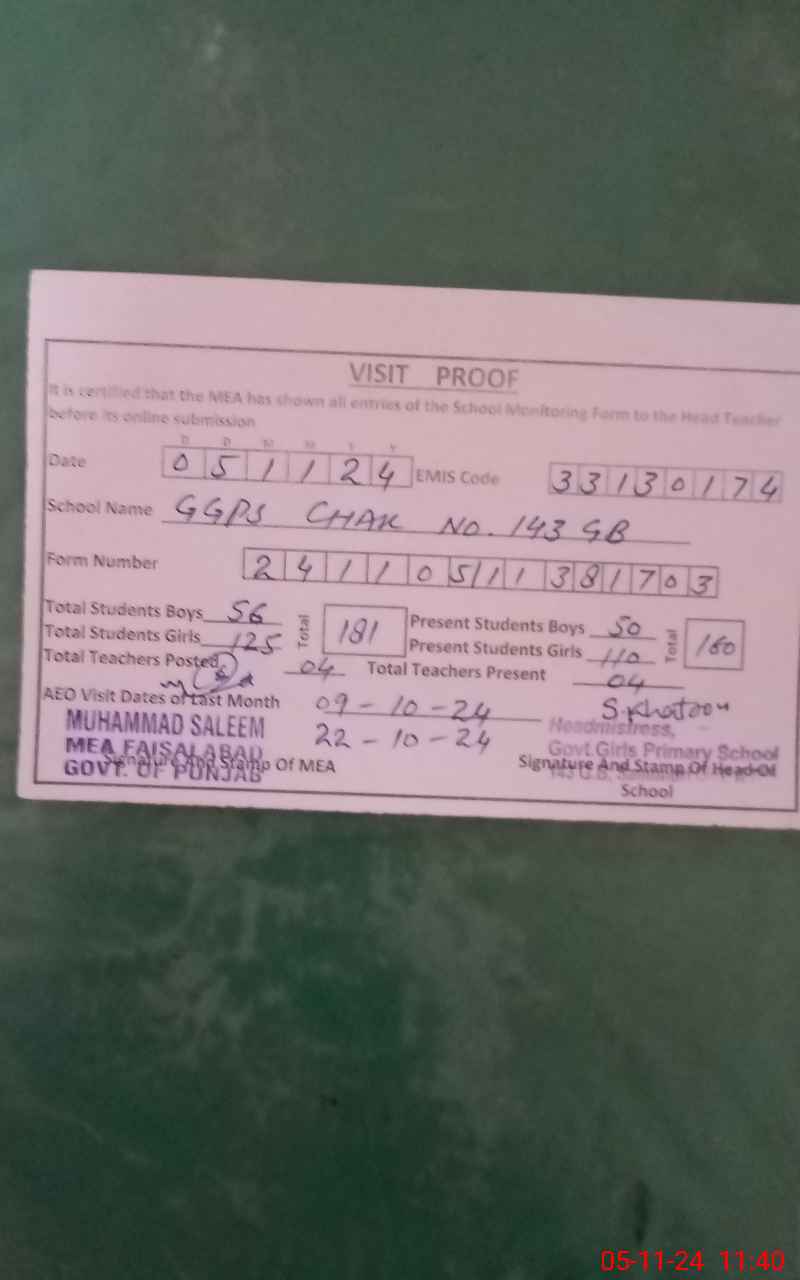 VISIT PROOF
It is certified that the MEA has shown all entries of the School Monitoring Form to the Head Teacher
before its online submission
D D M M Y Y
Date 051124 EMIS Code 33130174
School Name GGPS CHAK NO. 143 GB
Form Number 24110511381703
Total Students Boys 56 Total 181 Present Students Boys 50 Total 160
Total Students Girls 125 Present Students Girls 110
Total Teachers Posted 04 Total Teachers Present 04
AEO Visit Dates of Last Month 09-10-24 S.Khatoon
22-10-24
MUHAMMAD SALEEM
MEA FAISALABAD
GOVT. OF PUNJAB
Signature And Stamp Of MEA
Headmistress,
Govt.Girls Primary School
Signature And Stamp Of Head Of
School
05-11-24 11:40